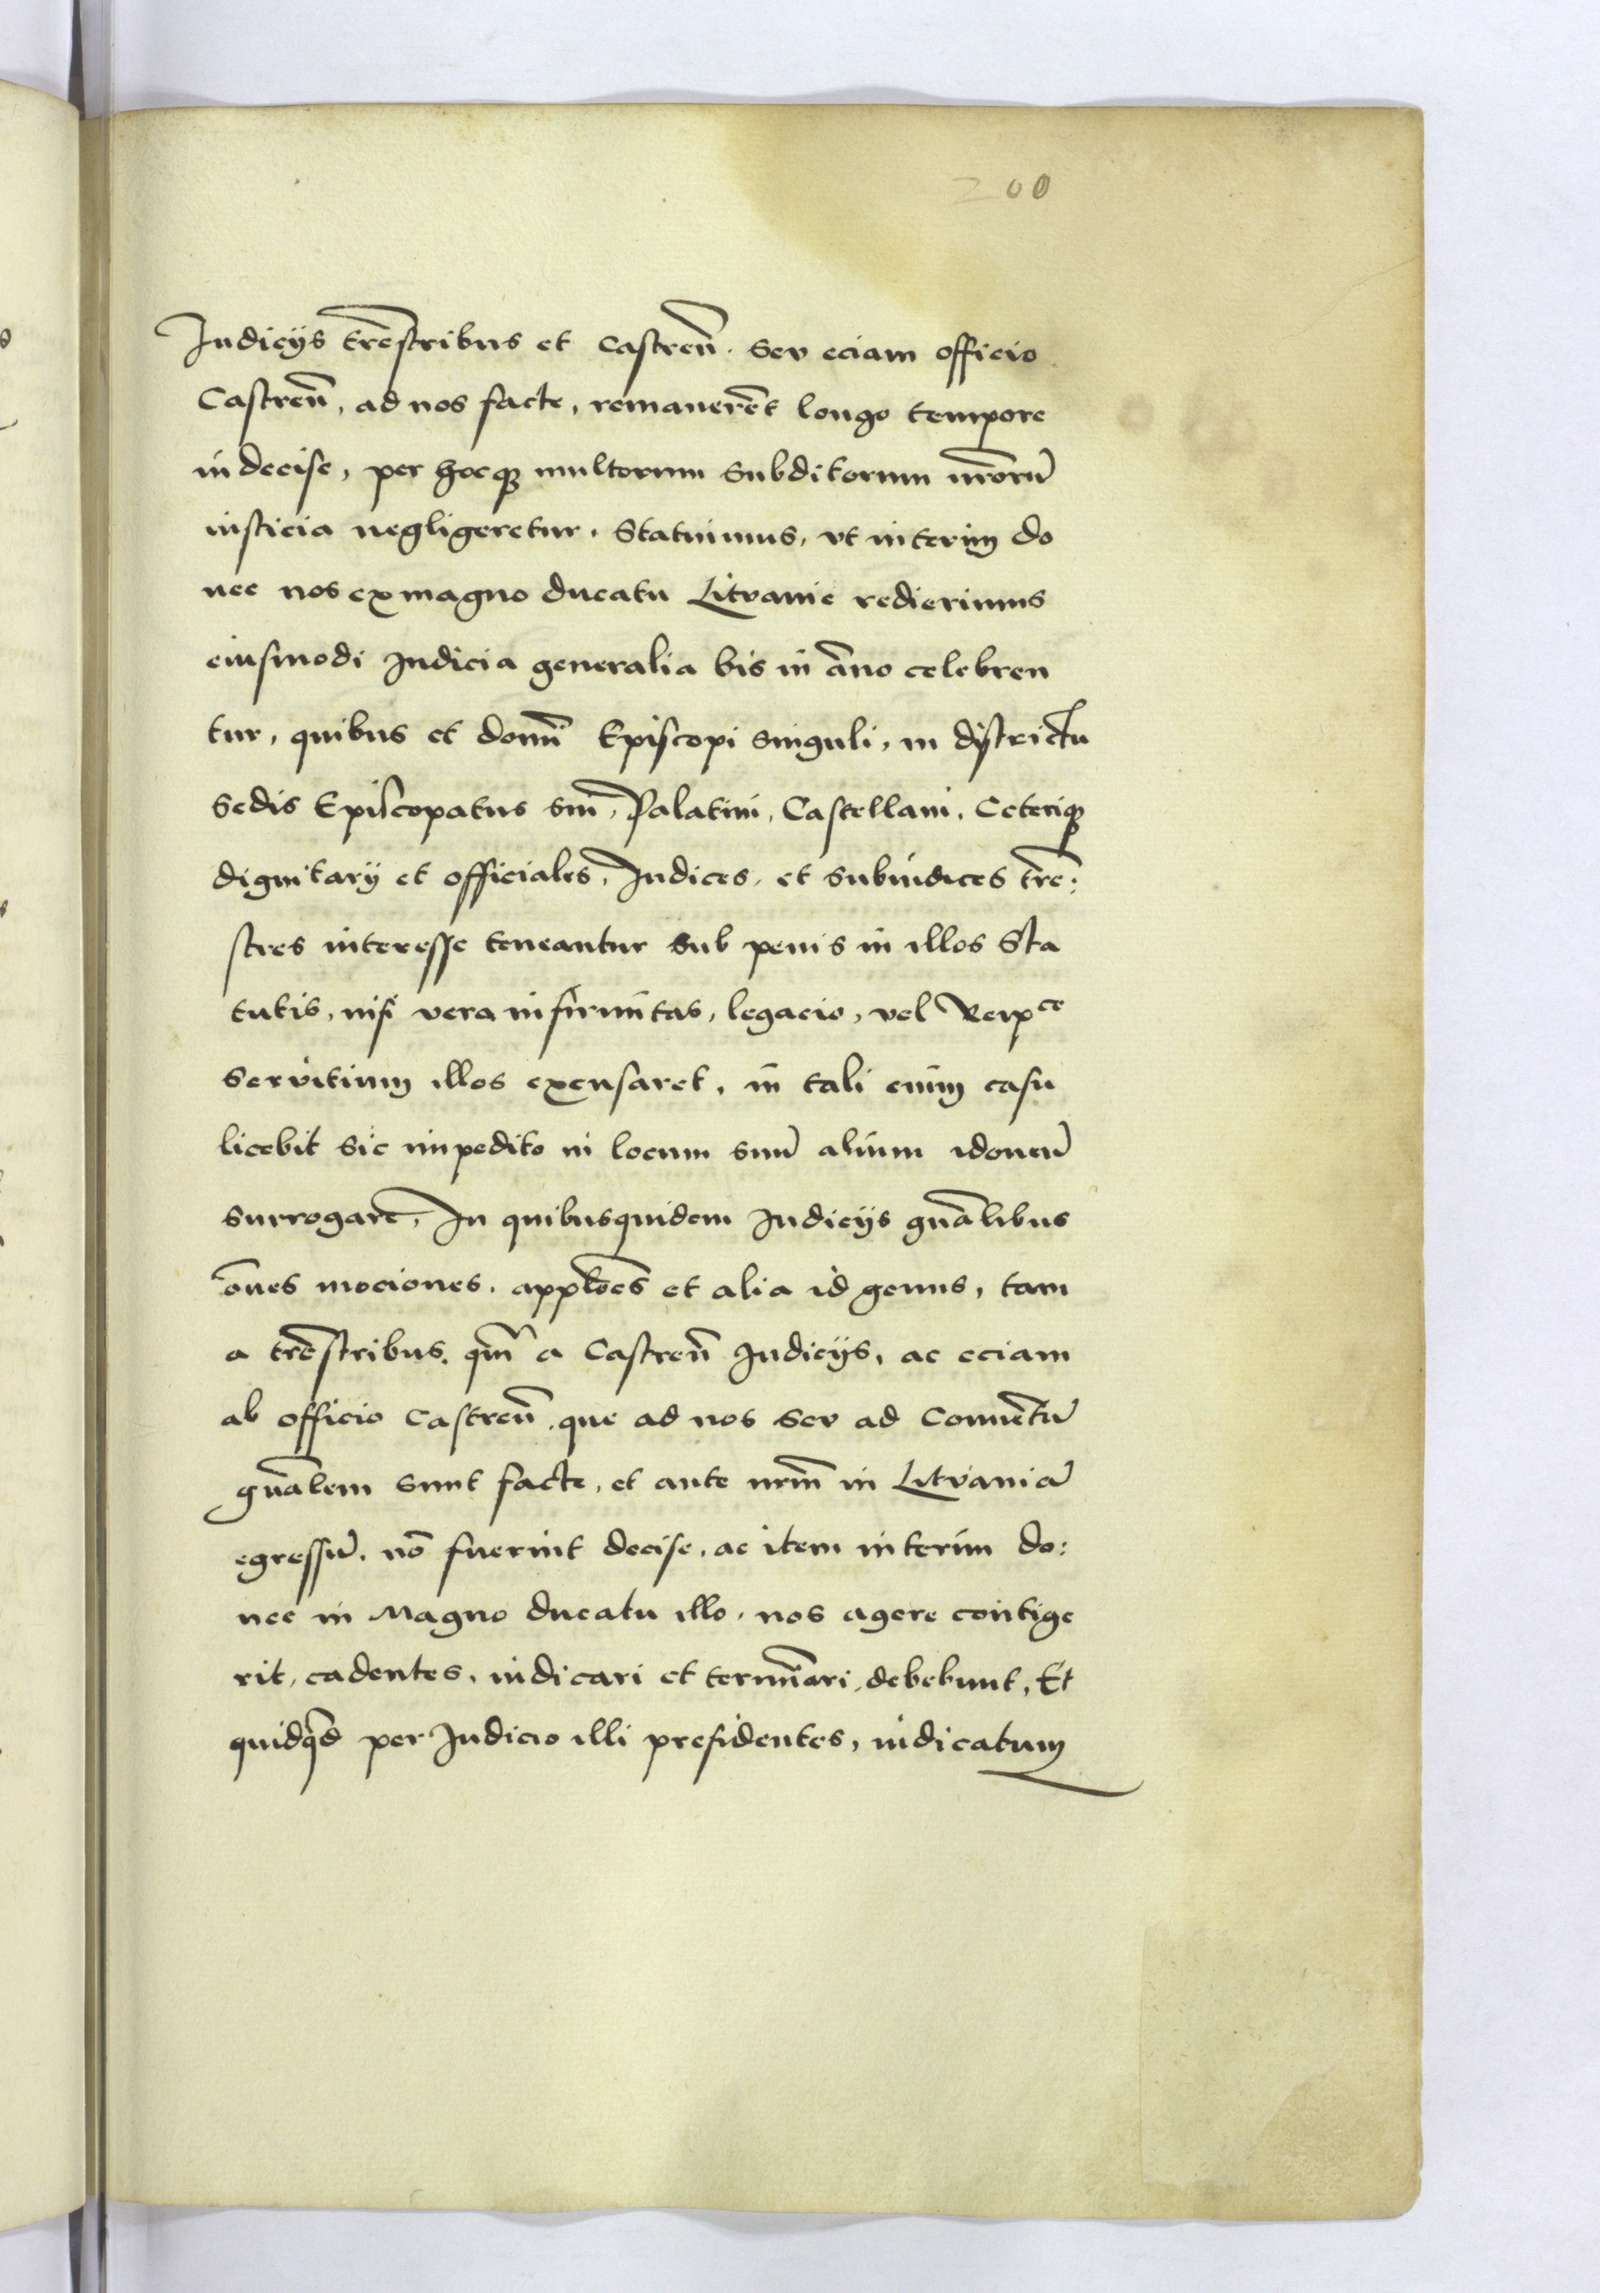 200
Judicijs tre̅stribus et castren̅. Seu eciam officio
Castren̅, ad nos facte, remanere̅t longo tempore
indecise, per hocq multorum subditorum nr̅oru̅
iusticia negligeretur. Statuimus, vt interim do
nec nos ex magno ducatu Lituanie redierimus
eiusmodi Judicia generalia bis in a̅no celebren
tur, quibus et domi̅ Episcopi singuli, in districtu
Sedis Episcopatus sui, Palatini, Castellani, Ceteriq
dignitarij et officiales, Judices, et subiudices tre̅:
stres interesse teneantur sub penis in illos sta
tutis, nisi vera infirmitas, legacio, vel Reip ce
Seruitium illos excusaret, in tali enim casu
licebit sic impedito in locum suu̅ alium idoneu̅
surrogare, In quibusquidem Judicijs gn̅alibus
o̅nes mociones, appl̅oes et alia id genus, tam
a tre̅stribus, qm̅ a Castren̅ Judicijs, ac eciam
ab officio castren̅ que ad nos seu ad Conue̅tu̅
gn̅alem sunt facte, et ante nrm̅ in Lituania̅
egressu̅, no̅ fuerint decise, ac item interim do:
nec in Magno ducatu illo, nos agere contige
rit, cadentes, iudicari et termi̅ari debebunt, Et
quidq̅d per Judicio illi presidentes, iudicatum